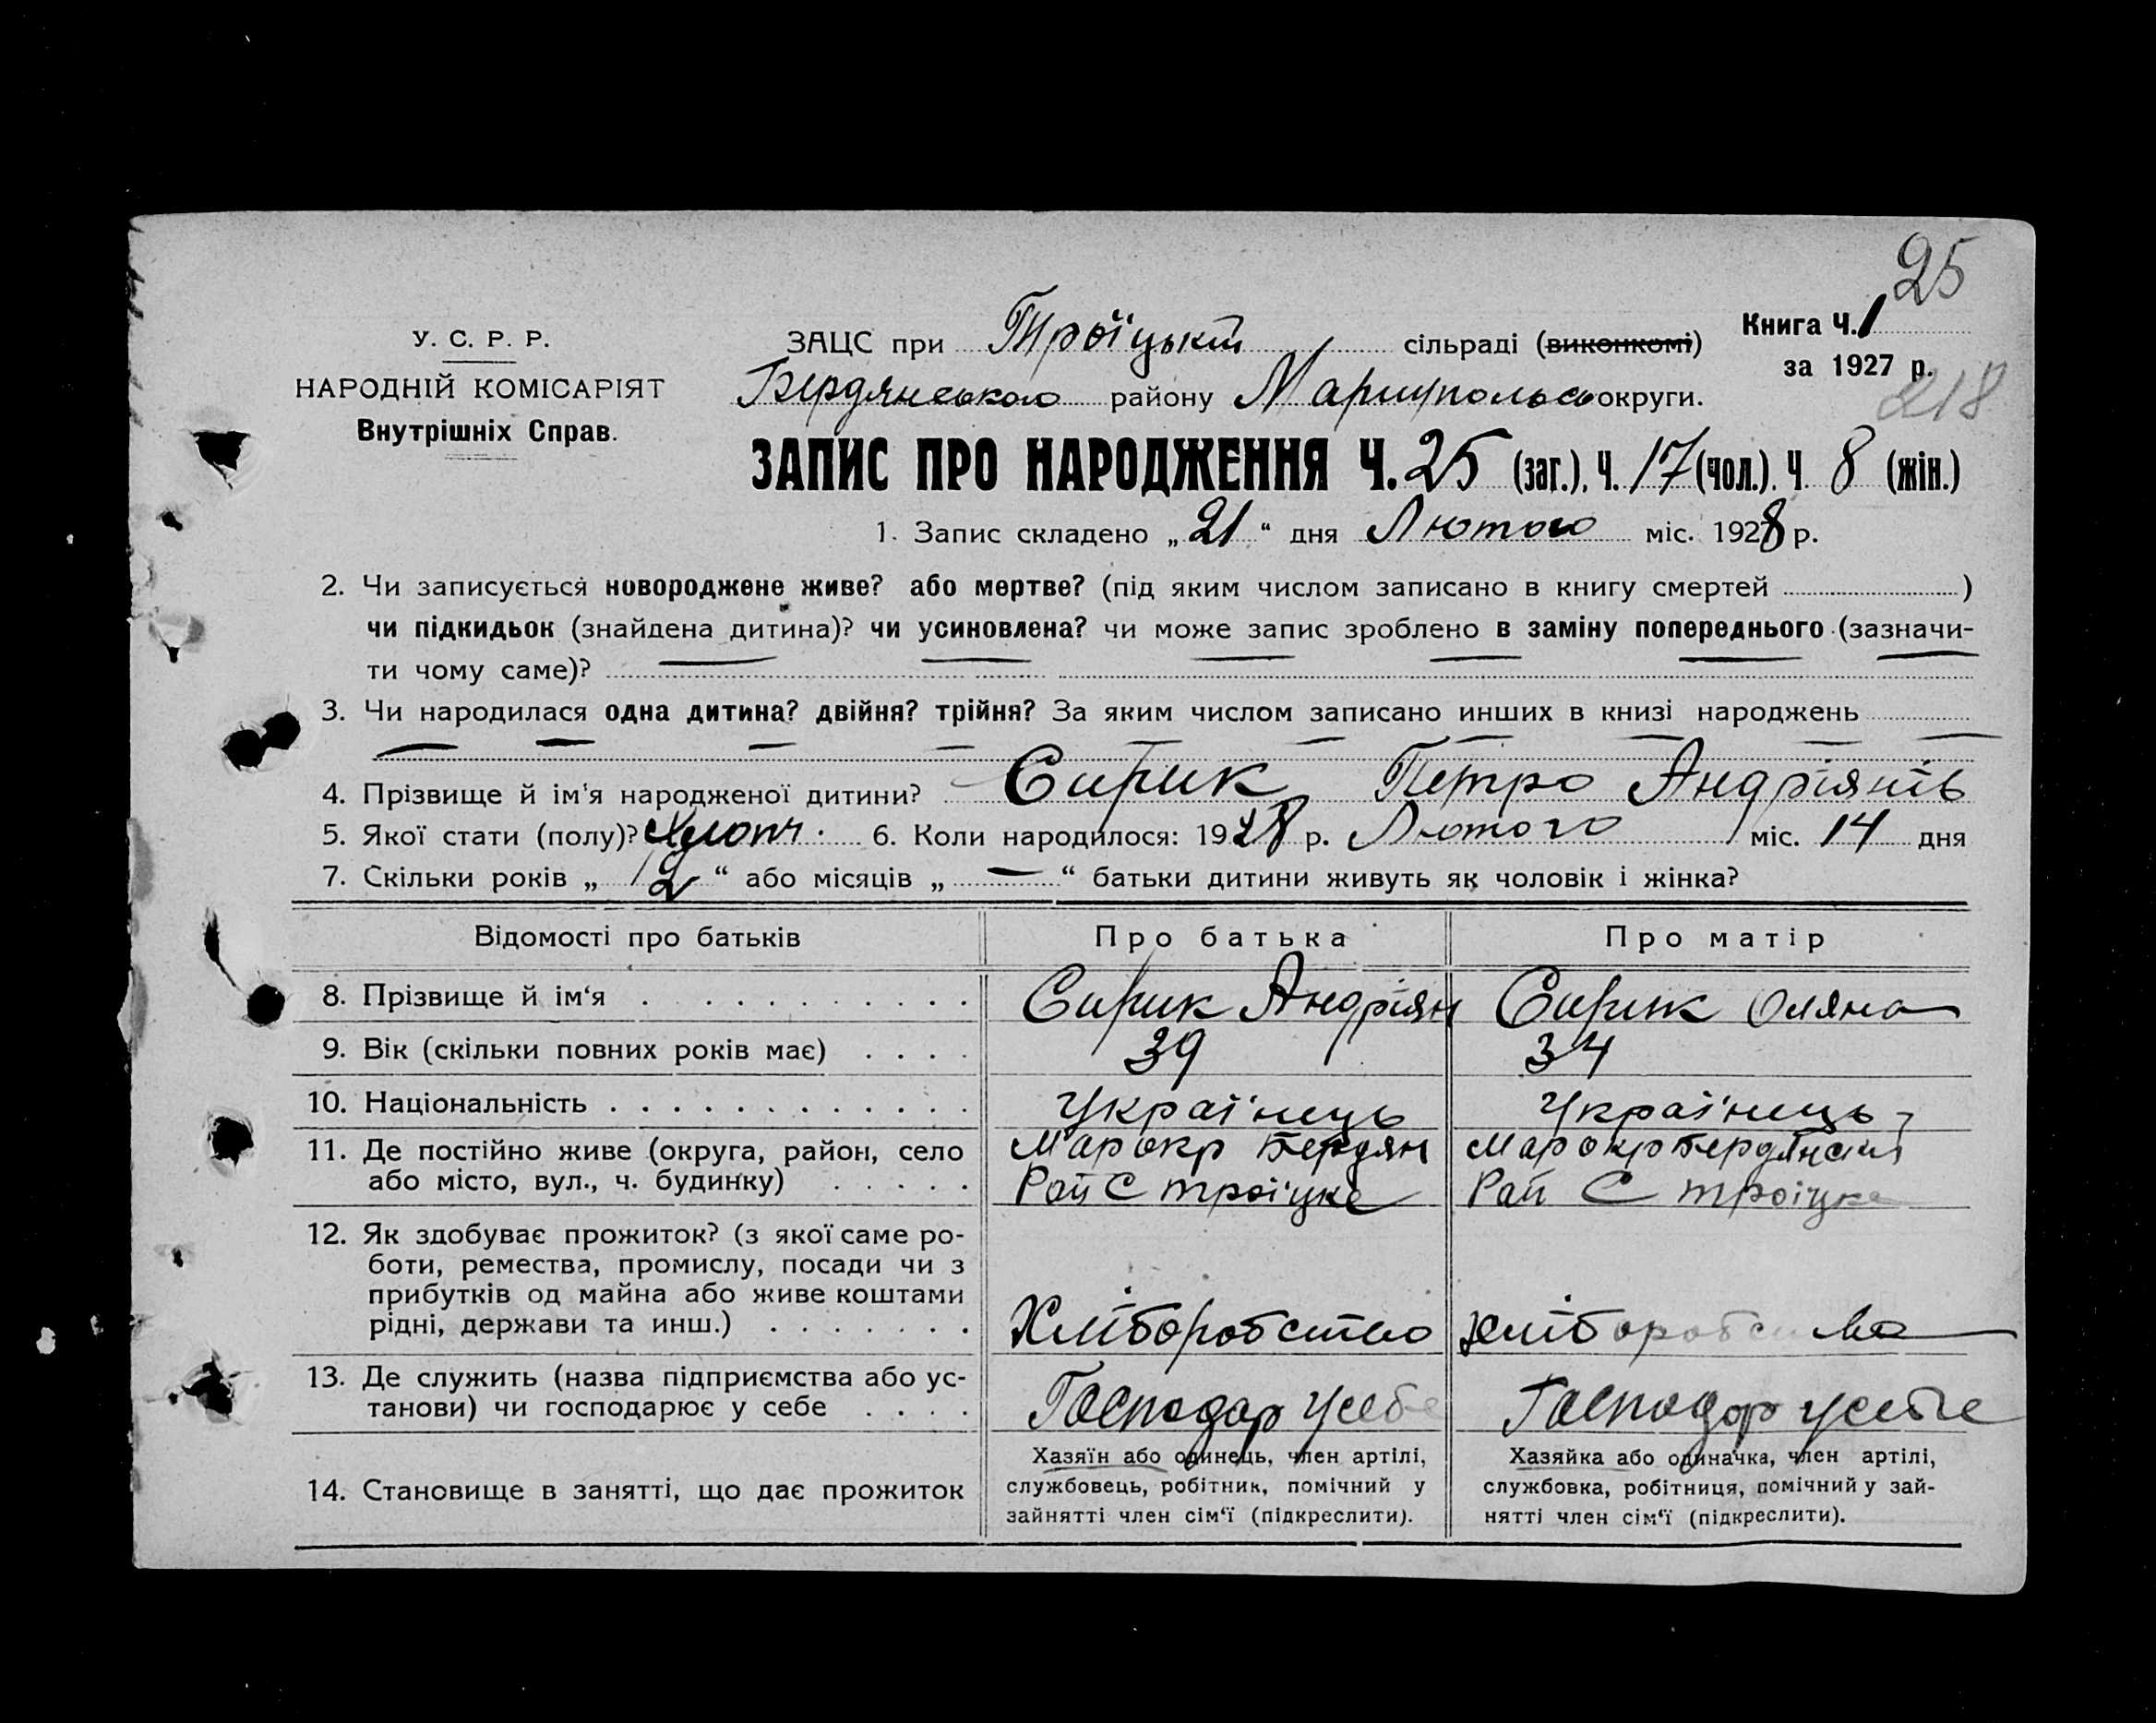 25
У. С. Р. Р.
НАРОДНІЙ КОМІСАРІЯТ
Внутрішніх Справ.
ЗАЦС при Троїцькій сільраді (виконкомі)
Книга Ч. 1
за 1927 р.
218
Бердянського району Маріупольсь округи.
ЗАПИС ПРО НАРОДЖЕННЯ Ч. 25 (заг.), Ч. 17 (чол.). Ч. 8 (жін.)
1. Запис складено „ 21 “ дня Лютого міс. 1928 р.
2. Чи записується новороджене живе? або мертве? (під яким числом записано в книгу смертей )
чи підкидьок (знайдена дитина)? чи усиновлена? чи може запис зроблено в заміну попереднього (зазначи-
ти чому саме)?
3. Чи народилася одна дитина? двійня? трійня? За яким числом записано инших в книзі народжень
4. Прізвище й ім'я народженої дитини? Сирик Петро Андріянів
5. Якої стати (полу)? Хлопч. 6. Коли народилося: 1928 р. Лютого міс. 14 дня
7. Скільки років „ 12 “ або місяців „ — “ батьки дитини живуть як чоловік і жінка?
Відомості про батьків Про батька Про матір
8. Прізвище й ім‘я Сирик Андріян Сирик Оляна
9. Вік (скільки повних років має) 39 34
10. Національність Українець Українець
11. Де постійно живе (округа, район, село Марокр Бердян Марокр Бердянськ
або місто, вул., ч. будинку) Рай С Троїцке Рай С Троїцке
12. Як здобуває прожиток? (з якої саме ро-
боти, ремества, промислу, посади чи з
прибутків од майна або живе коштами
рідні, держави та инш.) Хліборобство хліборобство
13. Де служить (назва підприємства або ус-
танови) чи господарює у себе Господар усебе Господар усебе
14. Становище в занятті, що дає прожиток
Хазяїн або одинець, член артілі,
службовець, робітник, помічний у
зайнятті член сім‘ї (підкреслити).
Хазяйка або одиначка, член артілі,
службовка, робітниця, помічний у зай-
нятті член сім‘ї (підкреслити).